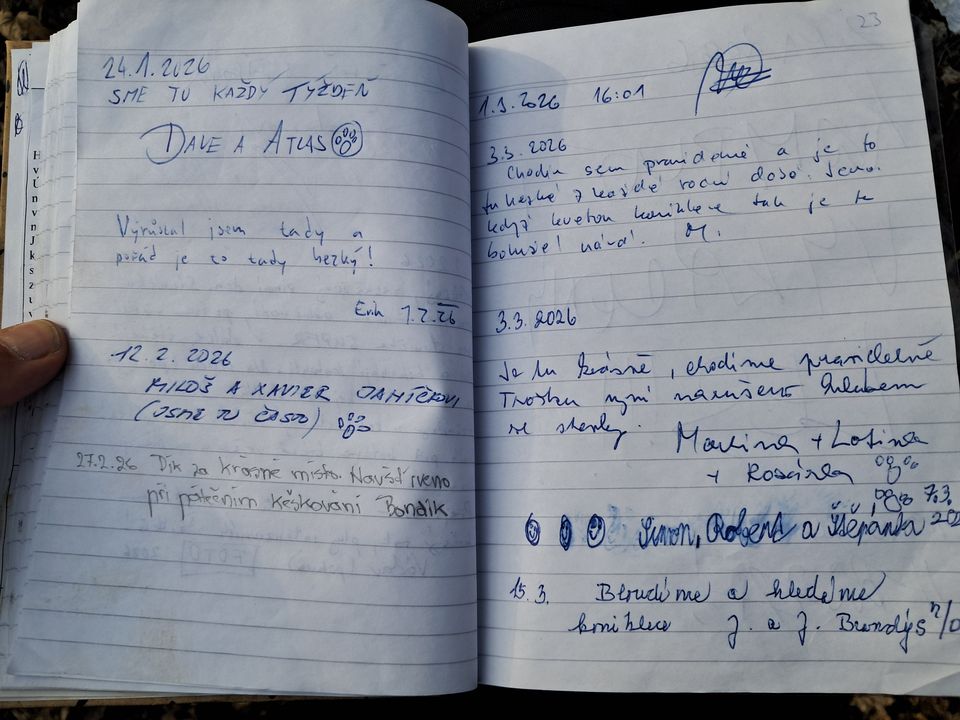 24.1.2026
SME TU KAŽDÝ TÝŽDEŇ
DAVE A ATLAS
Vyrůstal jsem tady a
pořád je to tady hezký!
Erik 1.2.26
12.2.2026
MILOŠ A XAVIER
(JSME TU ČASTO)
27.2.26 Dík za krásné místo. Navštíveno
při pátečním keškování Bondík
23
1.3.2026 16:01
3.3.2026
Chodím sem pravidelně a je to
tu hezké v každé roční době. Jenom
když kvetou koniklece tak je to
bohužel nával. M.
3.3.2026
Je tu krásně, chodíme pravidelně
Trošku nyní narušeno hlukem
ze stavby.
Martina + Lotinka
+ Rozárka
7.3.
Šimon, Robert a Štěpánka 202
15.3. Bloudíme a hledáme
koniklece J. a J. Brandýs n/O
H
v
Ú
n
v
n
J
k
s
z
u
v